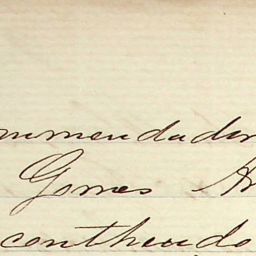 mmendador
Gomes
conthendo